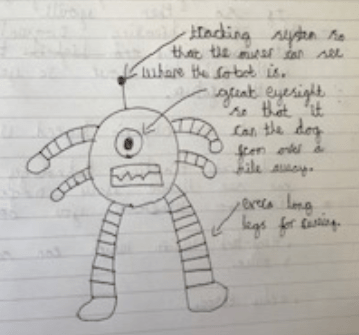 tracking system so
that the owner can see
where the robot is.
great eyesight
so that it
can the dog
from over a
mile away.
extra long
legs for